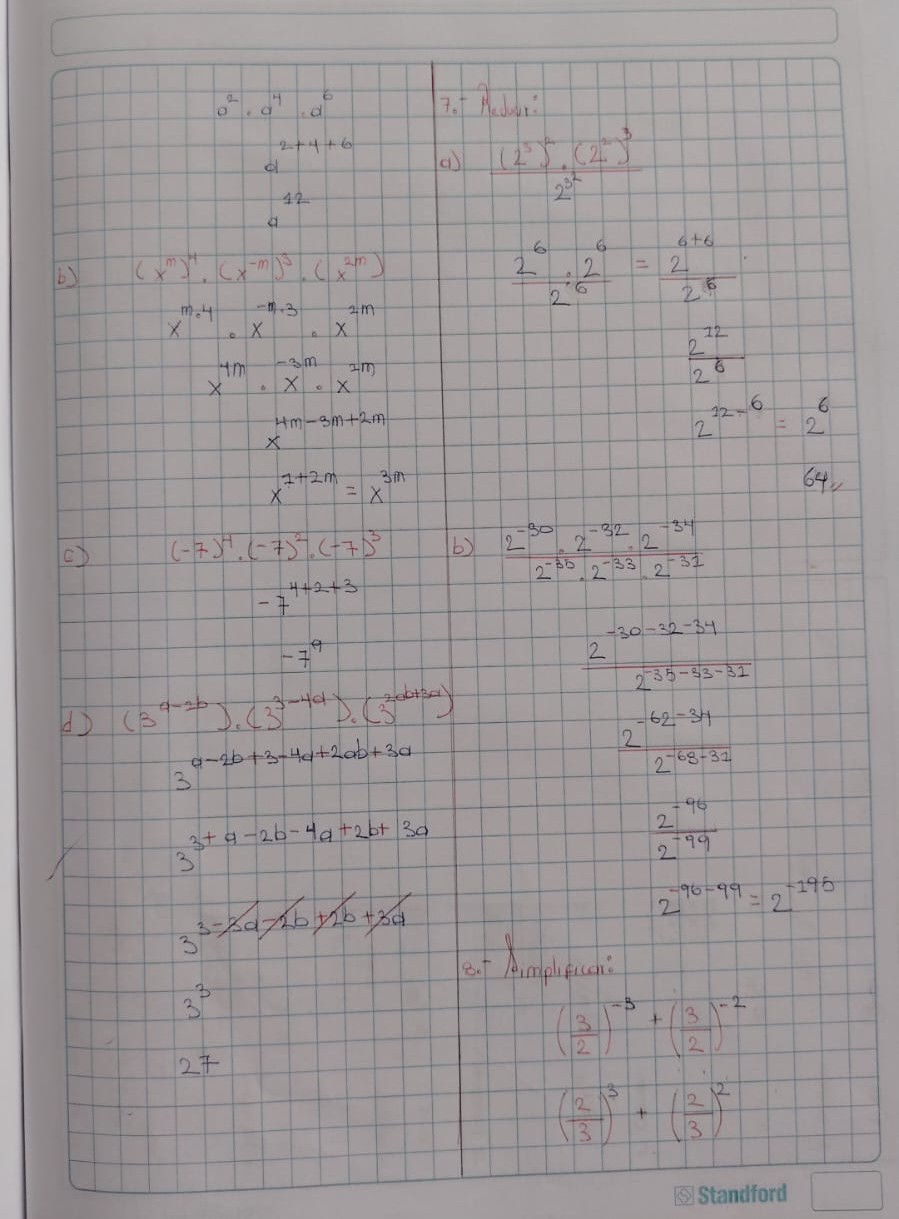 a² · a⁴ · a⁶
a^{2+4+6}
a^{12}
b) (x^m)^4 · (x^{-m})^3 · (x^{2m})
x^{m·4} · x^{-m·3} · x^{2m}
x^{4m} · x^{-3m} · x^{2m}
x^{4m-3m+2m}
x^{7+2m} = x^{3m}
c) (-7)^4 · (-7)^2 · (-7)^3
-7^{4+2+3}
-7^9
d) (3^{a-2b}) · (3^{3-4a}) · (3^{2ab+3a})
3^{a-2b+3-4a+2ab+3a}
3^{3+a-2b-4a+2b+3a}
3^{3-3a-2b+2b+3a}
3^3
27
7.- Reducir:
a) (2^3)^2 · (2^2)^3 / 2^{3^2}
2^6 · 2^6 / 2^6 = 2^{6+6} / 2^6
2^{12} / 2^6
2^{12-6} = 2^6
64//
b) 2^{-30} · 2^{-32} · 2^{-34} / 2^{-35} · 2^{-33} · 2^{-31}
2^{-30-32-34} / 2^{-35-33-31}
2^{-62-34} / 2^{-68-31}
2^{-96} / 2^{-99}
2^{-96-99} = 2^{-195}
8.- Simplificar:
(3/2)^{-3} + (3/2)^{-2}
(2/3)^3 + (2/3)^2
Standford